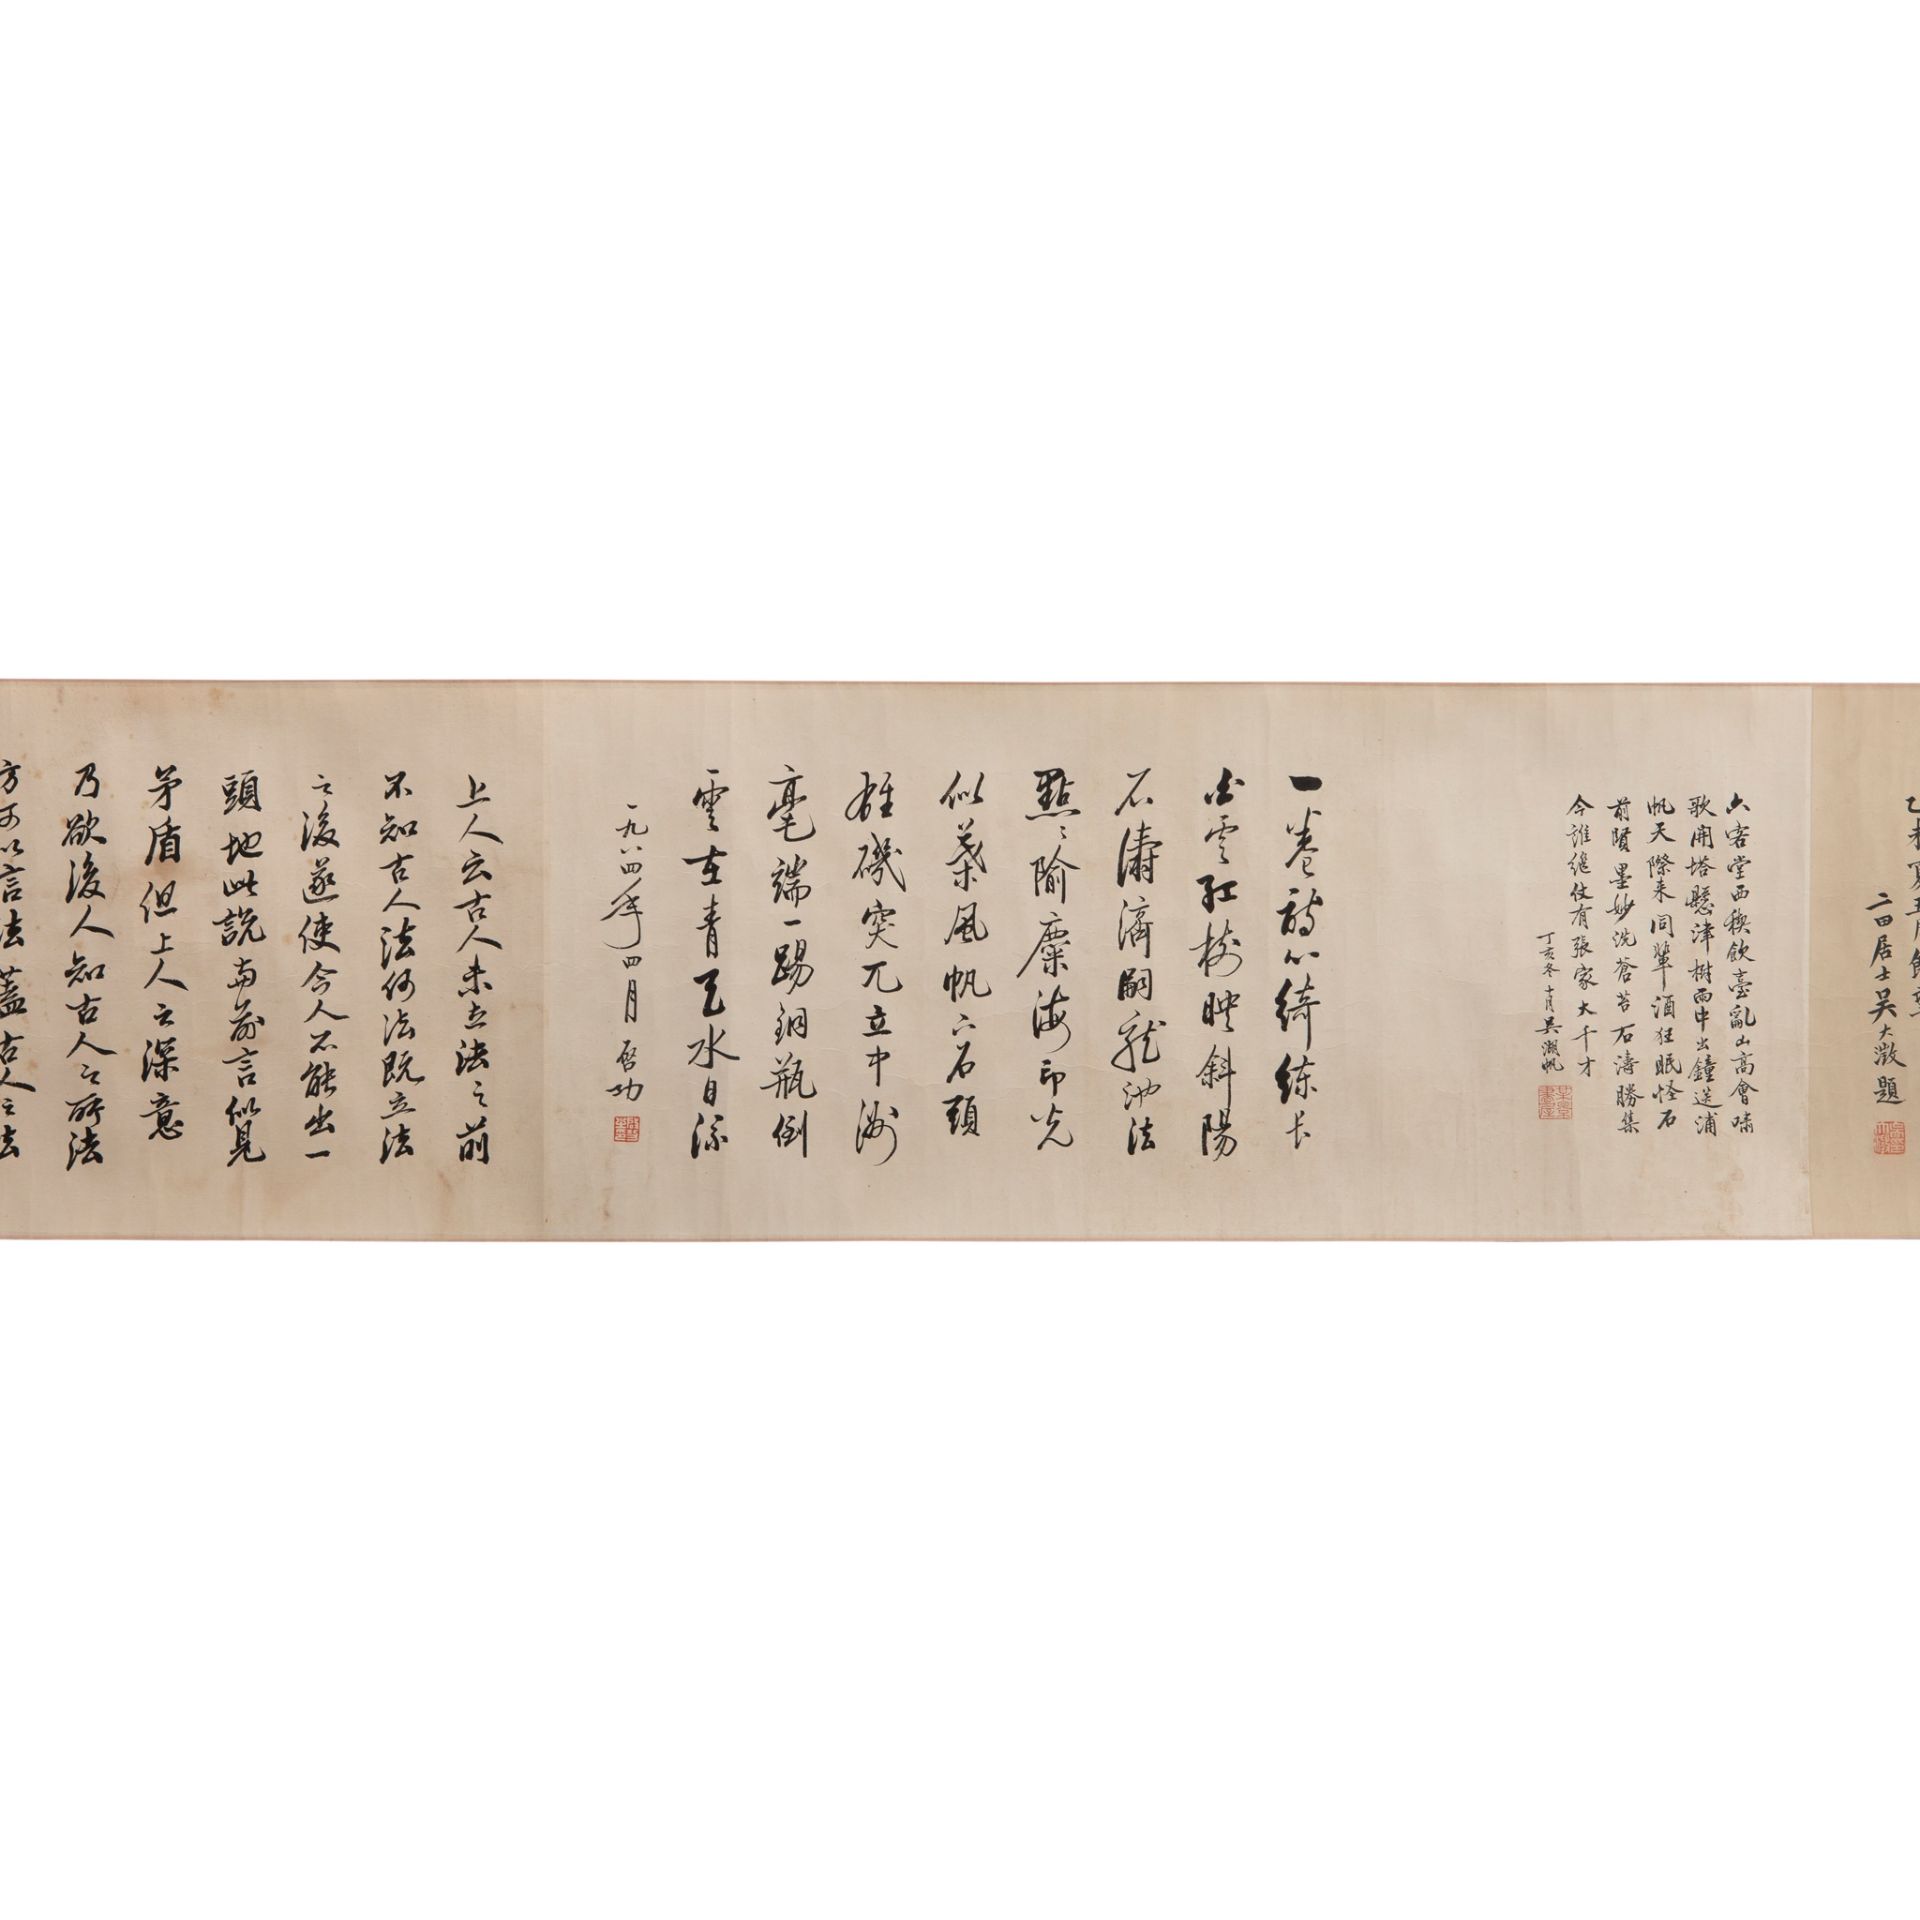 二田居士吴大澂題
六客堂西稧飲臺亂山高會嘯
歌開塔懸津樹雨中出鐘送浦
帆天際来同輩酒狂眠怪石
前賢墨妙洗蒼苔石濤勝集
今誰繼仗有張家大千才
丁亥冬十月吴湖帆
一卷詩心綺練長
白雲紅樹映斜陽
石濤濟嗣龍池法
點〻隃麋海印光
似葉風帆下石頭
雄磯突兀立中洲
毫端一踢銅瓶倒
雲在青天水自流
一九八四年四月啓功
上人云古人未立法之前
不知古人法何法既立法
之後遂使今人不能出一
頭地此説与前言似見
矛盾但上人之深意
乃欲後人知古人之所法
方可以言法蓋古人之法